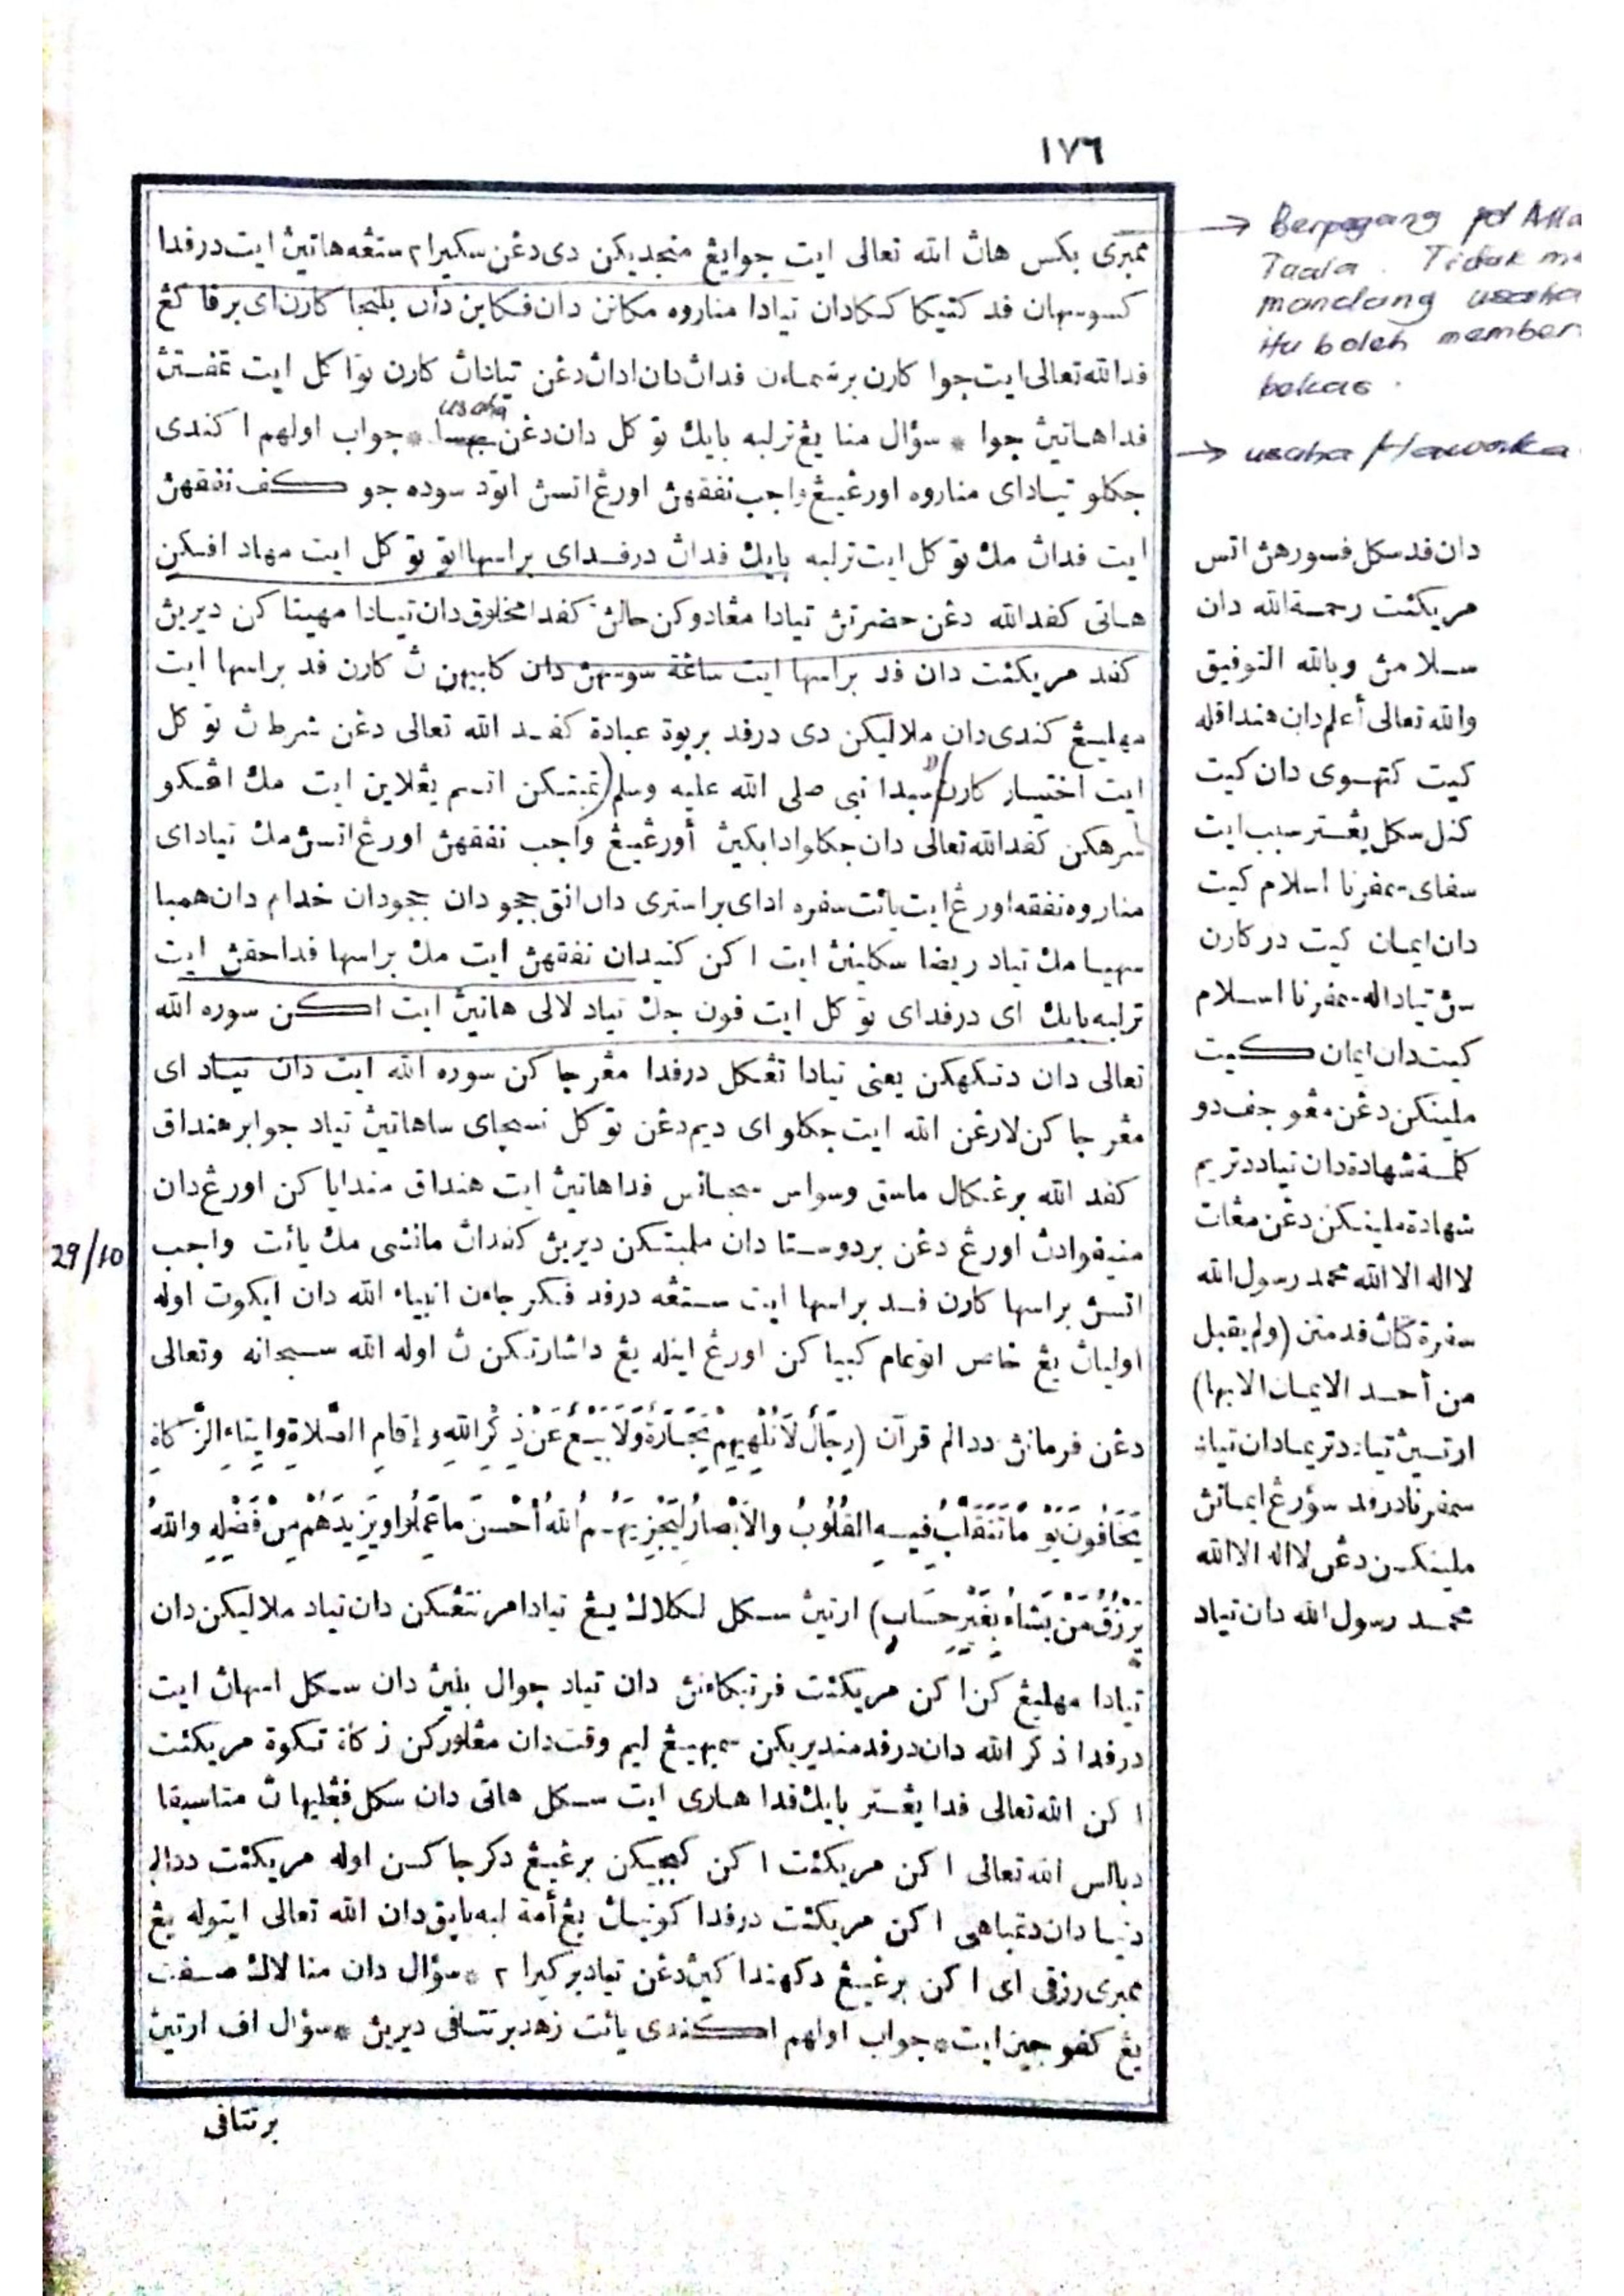 ١٧٦
ممبري بكس هاڽ الله تعالى ايت جوا يڠ منجديكن دي دڠن سكيرا٢ ستڠه هاتيڽ ايت درفدا
كسوسهان فد كتيكا كـكادان تيادا مناروه مكانن دان فكاين دان بلنجا كارن اي برفاكڠ
فد الله تعالى ايت جوا كارن برسمـاءن فداڽ دان اداڽ دڠن تياداڽ كارن توا كل ايت تمفتڽ
usaha
فدا هاتيڽ جوا * سؤال منا يڠ ترلبه بايك توكل دان دڠن * جواب اولهم اكندي
جكلو تيادا اي مناروه اورڠ يڠ واجب نفقهڽ اورڠ اتسڽ اتود سوده جوكف نفقهڽ
ايت فداڽ مك توكل ايت ترلبه بايك فداڽ درفد اي براسها اتو توكل ايت مهادافكن
هاتي كفد الله دڠن حضرتڽ تيادا مڠادوكن حالڽ كفدا مخلوق دان تيادا مهيناكن ديريڽ
كفد مريكئت دان فد براسها ايت ساڠة سوسهڽ دان كابيهن ڽ كارن فد براسها ايت
مهليڠ كندي دان ملاليكن دي درفد بربوة عبادة كفد الله تعالى دڠن شرط ڽ توكل
ايت اختيار كارن سبدا نبي صلى الله عليه وسلم (تمبتكن انـم يڠلاين ايت مك اڠكو
سرهكن كفد الله تعالى دان جكلو ادا بكيڽ أورڠ يڠ واجب نفقهڽ اورڠ اتسڽ مك تيادا اي
مناروه نفقه اورڠ ايت يائت سفره ادا اي براستري دان انق ججو دان ججودان خدام دان همبا
سهيا مك تياد ريضا سكلينڽ ايت اكن كتيدان نفقهڽ ايت مك براسها فدا حقڽ ايت
ترلبه بايك اي درفد اي توكل ايت فون جك تياد لالي هاتيڽ ايت اكن سوره الله
تعالى دان دتكهكن يعني تيادا تڠكل درفدا مڠرجاكن سوره الله ايت دان تياد اي
مڠرجاكن لارڠن الله ايت جكلو اي ديم دڠن توكل نسچاي ساهاتيڽ تياد جوا برهنداق
كفد الله برڠكال ماسق وسواس سجانس فدا هاتيڽ ايت هنداق مندايا كن اورڠ دان
29/10
منيفوادڽ اورڠ دڠن بردوستا دان ملبتكن ديريڽ كفداڽ مانئسي مك يائت واجب
اتسڽ براسها كارن فد براسها ايت ستڠه درفد فكرجاءن انبياء الله دان ايكوت اوله
اولياڽ يڠ خاص اتو عام كبيا كن اورڠ اينله يڠ داشارتكن ڽ اوله الله سبحانه وتعالى
دڠن فرمانڽ ددالم قرآن (رِجَالٌ لَا تُلْهِيهِمْ تِجَارَةٌ وَلَا بَيْعٌ عَنْ ذِكْرِ اللهِ وإقامِ الصَّلاةِ وايتاءِ الزَّكاةِ
يَخَافُونَ يَوْمًا تَتَقَلَّبُ فِيهِ القُلُوبُ والاَبْصارُ لِيَجْزِيَهُمُ اللهُ أَحْسَنَ ما عَمِلُوا ويَزِيدَهُمْ مِنْ فَضْلِهِ واللهُ
يَرْزُقُ مَنْ يَشاءُ بِغَيْرِ حِسَابٍ) ارتيڽ سكل لكلاك يڠ تيادا مرنتڠكن دان تياد ملاليكن دان
تيادا مهليڠكن اكن مريكئت فرنيكاءنڽ دان تياد جوال بليڽ دان سكل اسهاڽ ايت
درفدا ذكر الله دان درفد منديريكن سمبهيڠ ليم وقت دان مڠلوركن زكاة تكوة مريكئت
اكن الله تعالى فدا يڠستر بايك فدا هاري ايت سكل هاتي دان سكل فڠليهاڽ متاسيفا
دبالس الله تعالى اكن مريكئت اكن كبجيكن برڠ يڠ دكرجاكن اوله مريكئت ددالم
دنيا دان دتمباهي اكن مريكئت درفدا كونياڽ يڠ أمة لبه بايق دان الله تعالى ايتوله يڠ
ممبري رزقي اي اكن برڠ يڠ دكهنداكيڽ دڠن تياد بركيرا٢ * سؤال دان منا لاك صفت
يڠ كفوجين ايت * جواب اولهم اكندي يائت زهد برتتافي ديريڽ * سؤال اف ارتيڽ
برتتافي
→ Berpegang pd Alla
Taala. Tidak me
mandang usaha
itu boleh member
bekas.
→ usaha
دان فد سكل فسورهڽ اتس
مريكئت رحمة الله دان
سلامڽ وبالله التوفيق
والله تعالى أعلم دان هنداقله
كيت كتهوي دان كيت
كنل سكل يڠستر سبب ايت
سفاي سمفرنا اسلام كيت
دان ايمان كيت دركارن
سڽ تياداله سمفرنا اسلام
كيت دان ايمان كيت
ملينكن دڠن مڠوجف دو
كلمة شهادة دان تياد دتريم
شهادة ملينكن دڠن مڠات
لا اله الا الله محمد رسول الله
سفرة كتاڽ فد متن (ولم يقبل
من أحد الايمان الا بها)
ارتيڽ تياد دتريما دان تياد
سمفرنا درفد سؤرڠ ايمانڽ
ملينكن دڠن لا اله الا الله
محمد رسول الله دان تياد